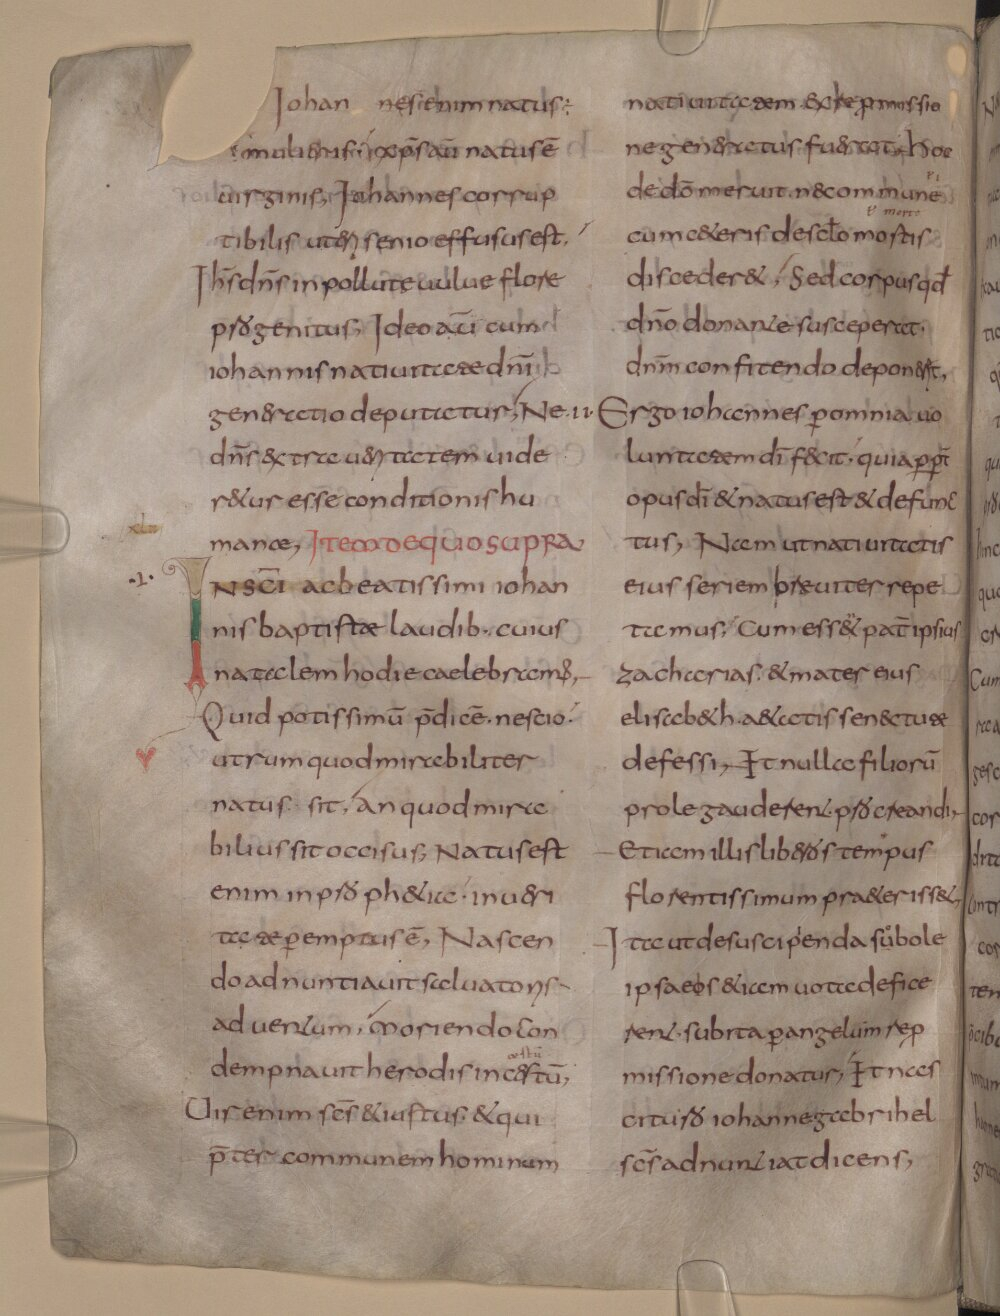 Johan nes enim natus;
& mulieris; xp̄s aū natus ē
uirginis, Johannes corrup
tibilis uteri senio effusus est,
Jh̄s dn̄s inpollute uulue flore
progenitus, Ideo ac̄ cum
iohannis natiuitate dn̄i
generatio deputatur, Ne
dn̄s extra ueritatem uide
retur esse conditionis hu
mane, Item de quo supra
.I.
IN sc̄i ac beatissimi iohan
nis baptiste laudib. cuius
natalem hodie caelebramus,
Quid potissimū p̄dicē. nescio.
utrum quod mirabiliter
natus sit, an quod mira
bilius sit occisus, Natus est
enim in prophetia. in ueri
tate peremptus ē, Nascen
do adnuntiauit saluatoris
aduentum, moriendo con
dempnauit herodis incestū,
Uir enim sc̄s & iustus & qui
p̄ter communem hominum
natiuitatem & repromissio
ne generatus fuerat, hoc
de dō meruit. ne commune
cum ceteris desclo mortis
discederet, Sed corpus qd
dn̄o donante susceperat.
dn̄m confitendo deponeret,
II Ergo iohannes p omnia uo
luntatem dī fecit, quia ppt
opus dī & natus est & defunc
tus, Nam ut natiuitatis
eius seriem breuiter repe
tamus, Cum esset pat̄ ipsius
zacharias. & mater eius
elisabeth. aetatis senectute
defessi, Et nulla filiorū
prole gauderent procreandi,
Etiam illis liberos tempus
florentissimum praeterisset,
Ita ut de suscipienda subole
ipsa eos etiam uota defice
rent. subita p angelum rep
missione donatur, Et nas
cituro iohanne gabrihel
sc̄s adnuntiat dicens,